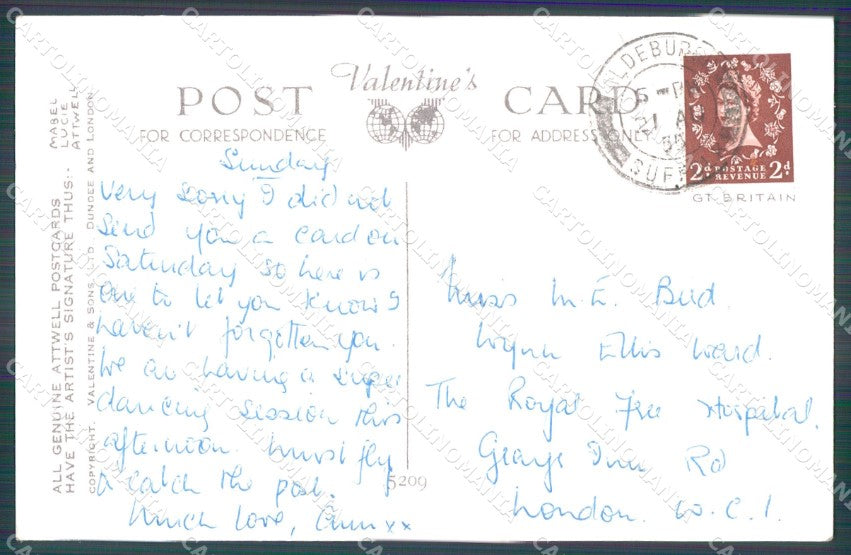 Valentine's
POST CARD
FOR CORRESPONDENCE
FOR ADDRESS ONLY
ALL GENUINE ATTWELL POSTCARDS
HAVE THE ARTIST'S SIGNATURE THUS:-
MABEL
LUCIE
ATTWELL
COPYRIGHT. VALENTINE & SONS, LTD. DUNDEE AND LONDON
Sunday
Very sorry I did not
send you a card on
Saturday so here is
one to let you know I
haven't forgotten you.
We are having a super
dancing session this
afternoon. Must fly
& catch the post.
Much love, Ann xx
5209
ALDEBURGH
SUFFOLK
2d POSTAGE REVENUE 2d
GT. BRITAIN
Miss M. E. Bird.
Wynn Ellis Ward.
The Royal Free Hospital.
Grays Inn Rd
London. W.C.1.
CARTOLINOMANIA